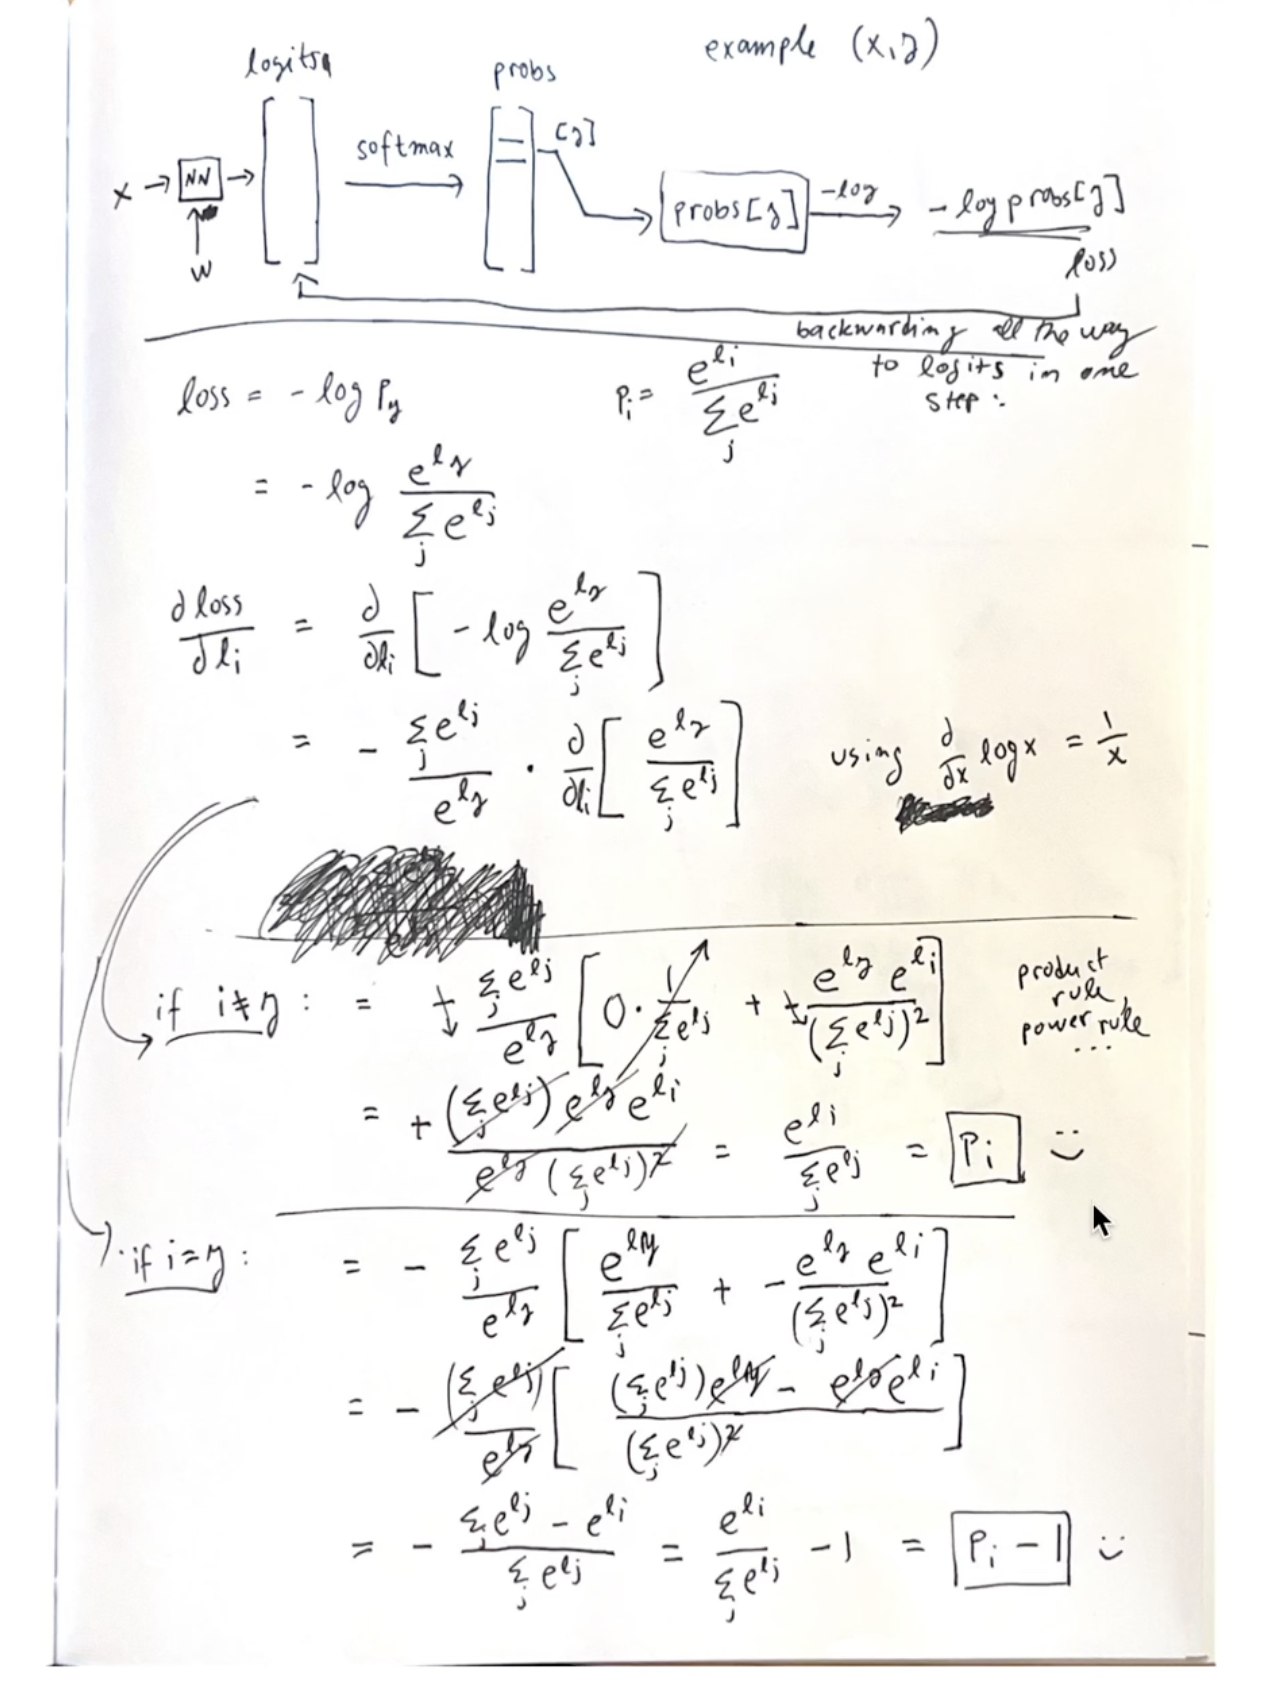 example (x,y)
logits
probs
x → NN → softmax [y] probs[y] -log - log probs[y]
W
loss
backwarding all the way
to logits in one
step:
loss = - log p_y
p_i = e^{l_i} / Σ_j e^{l_j}
= - log e^{l_y} / Σ_j e^{l_j}
∂loss / ∂l_i = ∂/∂l_i [ - log e^{l_y} / Σ_j e^{l_j} ]
= - Σ_j e^{l_j} / e^{l_y} · ∂/∂l_i [ e^{l_y} / Σ_j e^{l_j} ] using ∂/∂x log x = 1/x
if i≠y : = - Σ_j e^{l_j} / e^{l_y} [ 0 · 1 / Σ_j e^{l_j} + - e^{l_y} e^{l_i} / (Σ_j e^{l_j})^2 ]
product
rule,
power rule
...
= + (Σ_j e^{l_j}) e^{l_y} e^{l_i} / e^{l_y} (Σ_j e^{l_j})^2 = e^{l_i} / Σ_j e^{l_j} = P_i :)
if i=y : = - Σ_j e^{l_j} / e^{l_y} [ e^{l_y} / Σ_j e^{l_j} + - e^{l_y} e^{l_i} / (Σ_j e^{l_j})^2 ]
= - (Σ_j e^{l_j}) / e^{l_y} [ (Σ_j e^{l_j}) e^{l_y} - e^{l_y} e^{l_i} / (Σ_j e^{l_j})^2 ]
= - Σ_j e^{l_j} - e^{l_i} / Σ_j e^{l_j} = e^{l_i} / Σ_j e^{l_j} - 1 = P_i - 1 :)